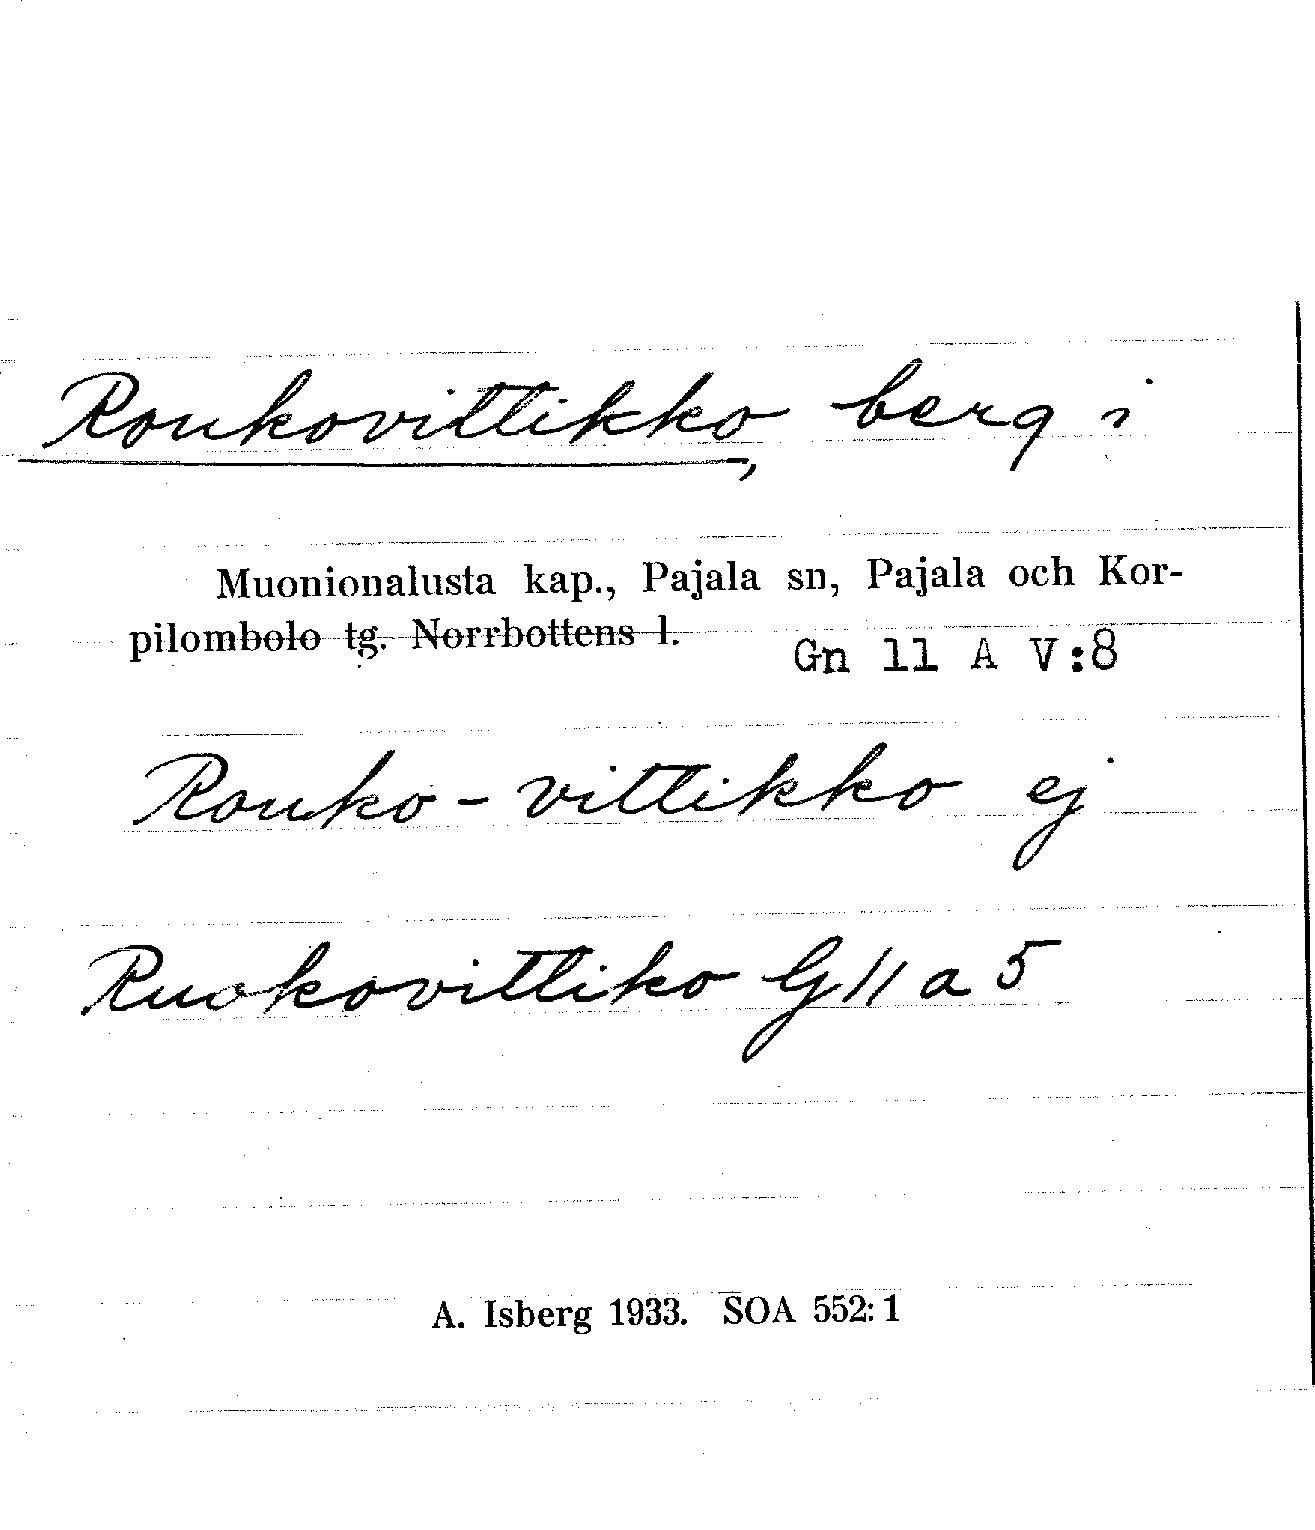 Roukovittikko, berg i
Muonionalusta kap., Pajala sn, Pajala och Kor-
pilombolo tg. Norrbottens l.
Gn 11 A V:8
Rouko-vittikko ej
Ruokovittiko G 11 a 5
A. Isberg 1933. SOA 552:1